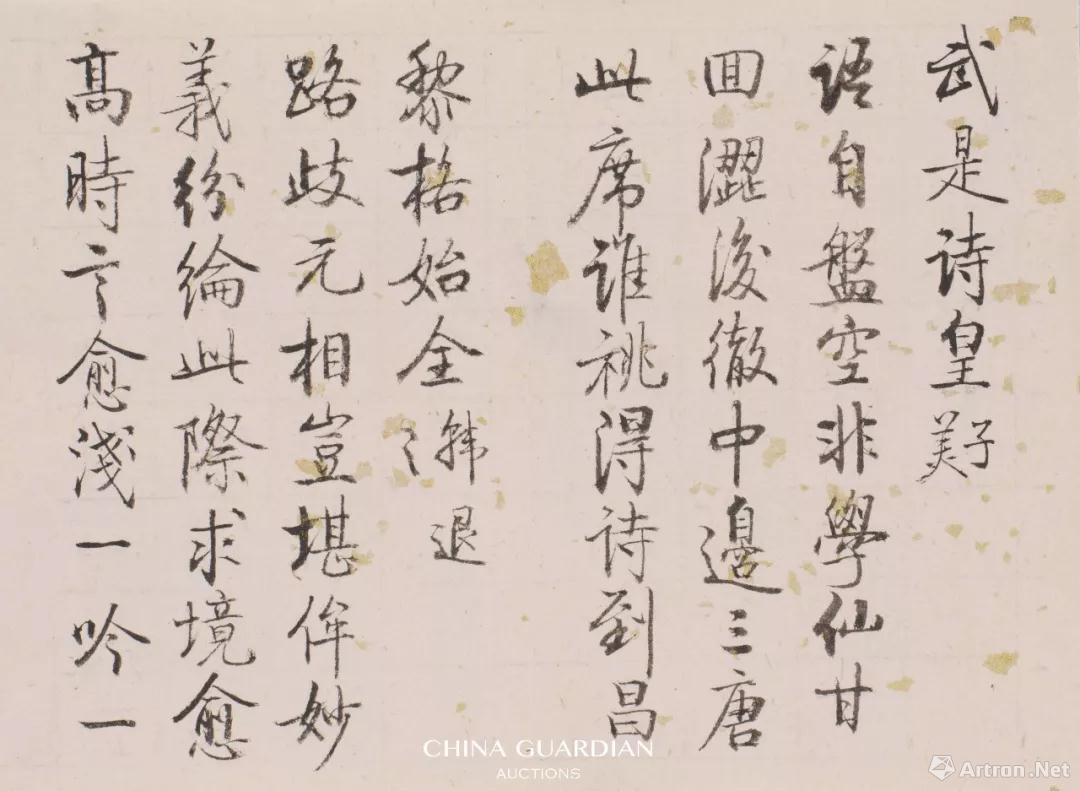 武是詩皇子美
語自盤空非學仙甘
回澀後徹中邊三唐
此席誰祧得詩到昌
黎格始全韓退之
路歧元相豈堪侔妙
義紛綸此際求境愈
高時言愈淺一吟一
CHINA GUARDIAN
AUCTIONS
Artron.Net